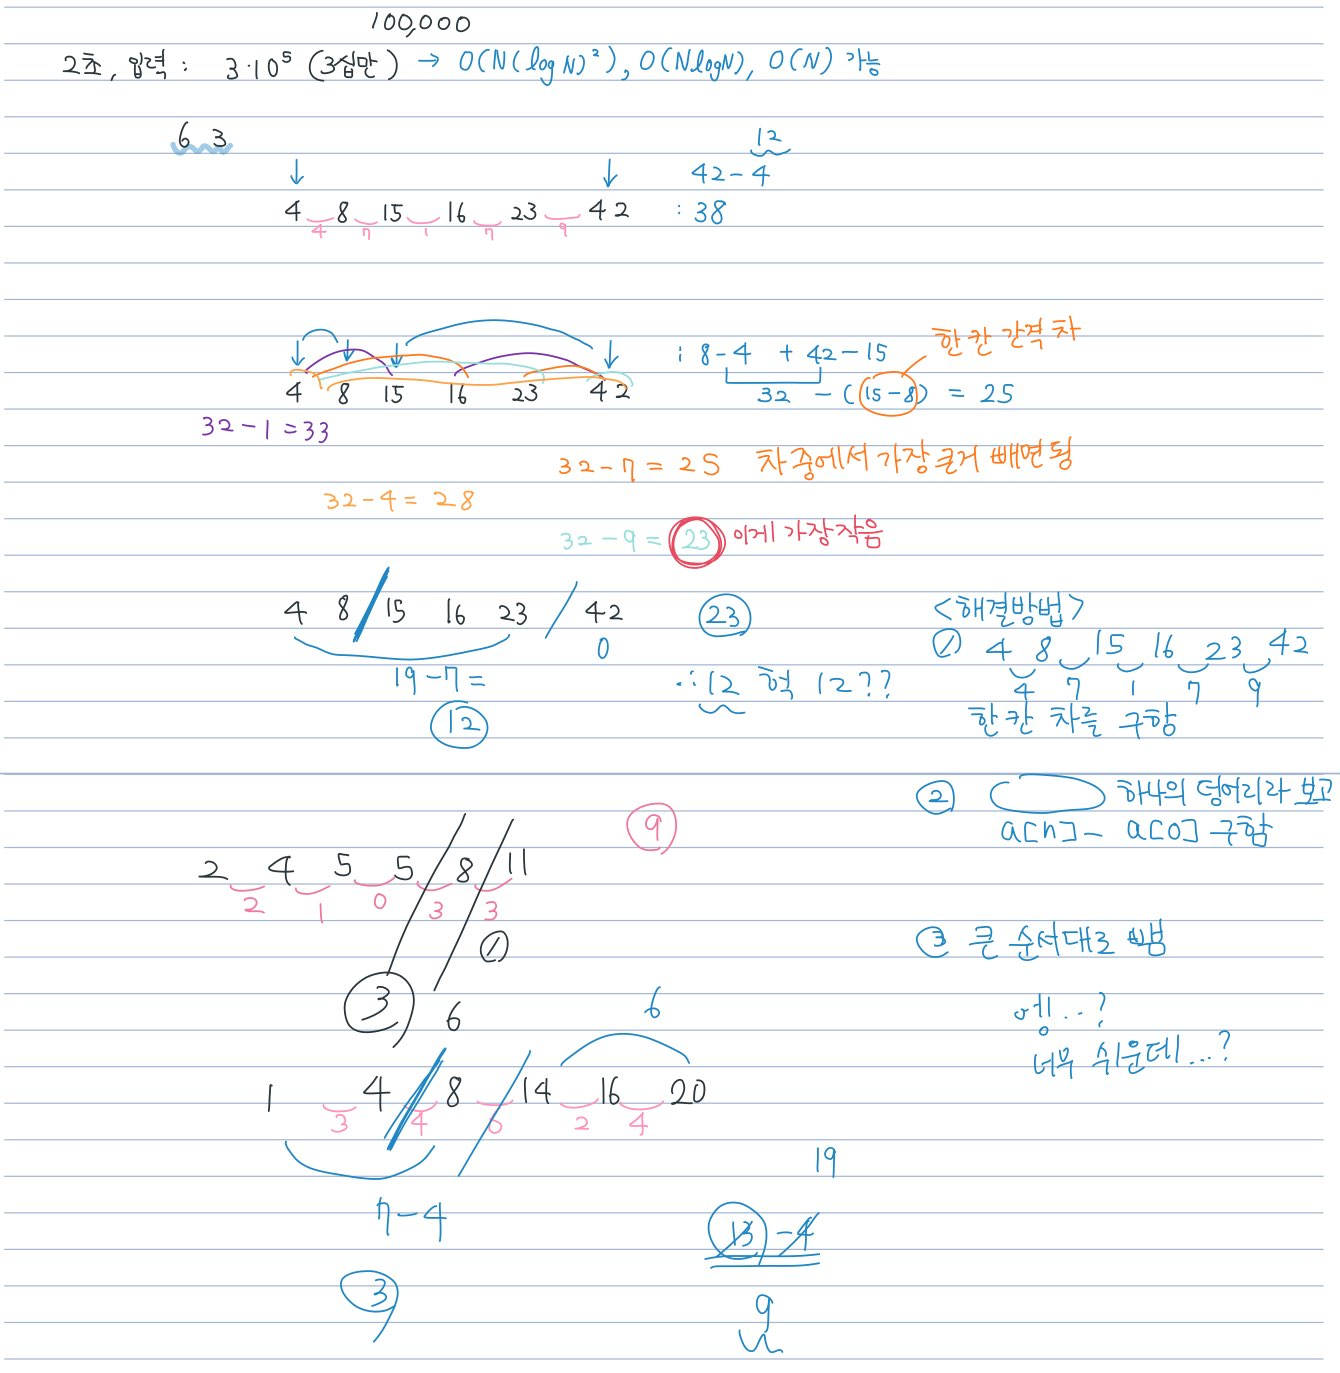 100,000
2초, 입력 : 3·10⁵ (3십만) → O(N(log N)²), O(NlogN), O(N) 가능
6 3
12
↓ ↓ 42 - 4
4 8 15 16 23 42 : 38
4 7 1 7 9
한 칸 간격 차
: 8-4 + 42-15
4 8 15 16 23 42 32 - (15-8) = 25
32 - 1 = 33
32 - 7 = 25 차 중에서 가장 큰거 빼면 됨
32 - 4 = 28
32 - 9 = 23 이게 가장 작음
4 8 / 15 16 23 / 42 23
0
19 - 7 =
12
∴ 12 헉 12??
<해결방법>
① 4 8 15 16 23 42
4 7 1 7 9
한 칸 차를 구함
② 하나의 덩어리라 보고
a[n] - a[0] 구함
③ 큰 순서대로 뺌
엥..?
너무 쉬운데...?
9
2 4 5 5 / 8 / 11
2 1 0 3 3
①
3 6
6
1 4 / 8 / 14 16 20
3 4 6 2 4
7 - 4
3
19
13 - 4
9